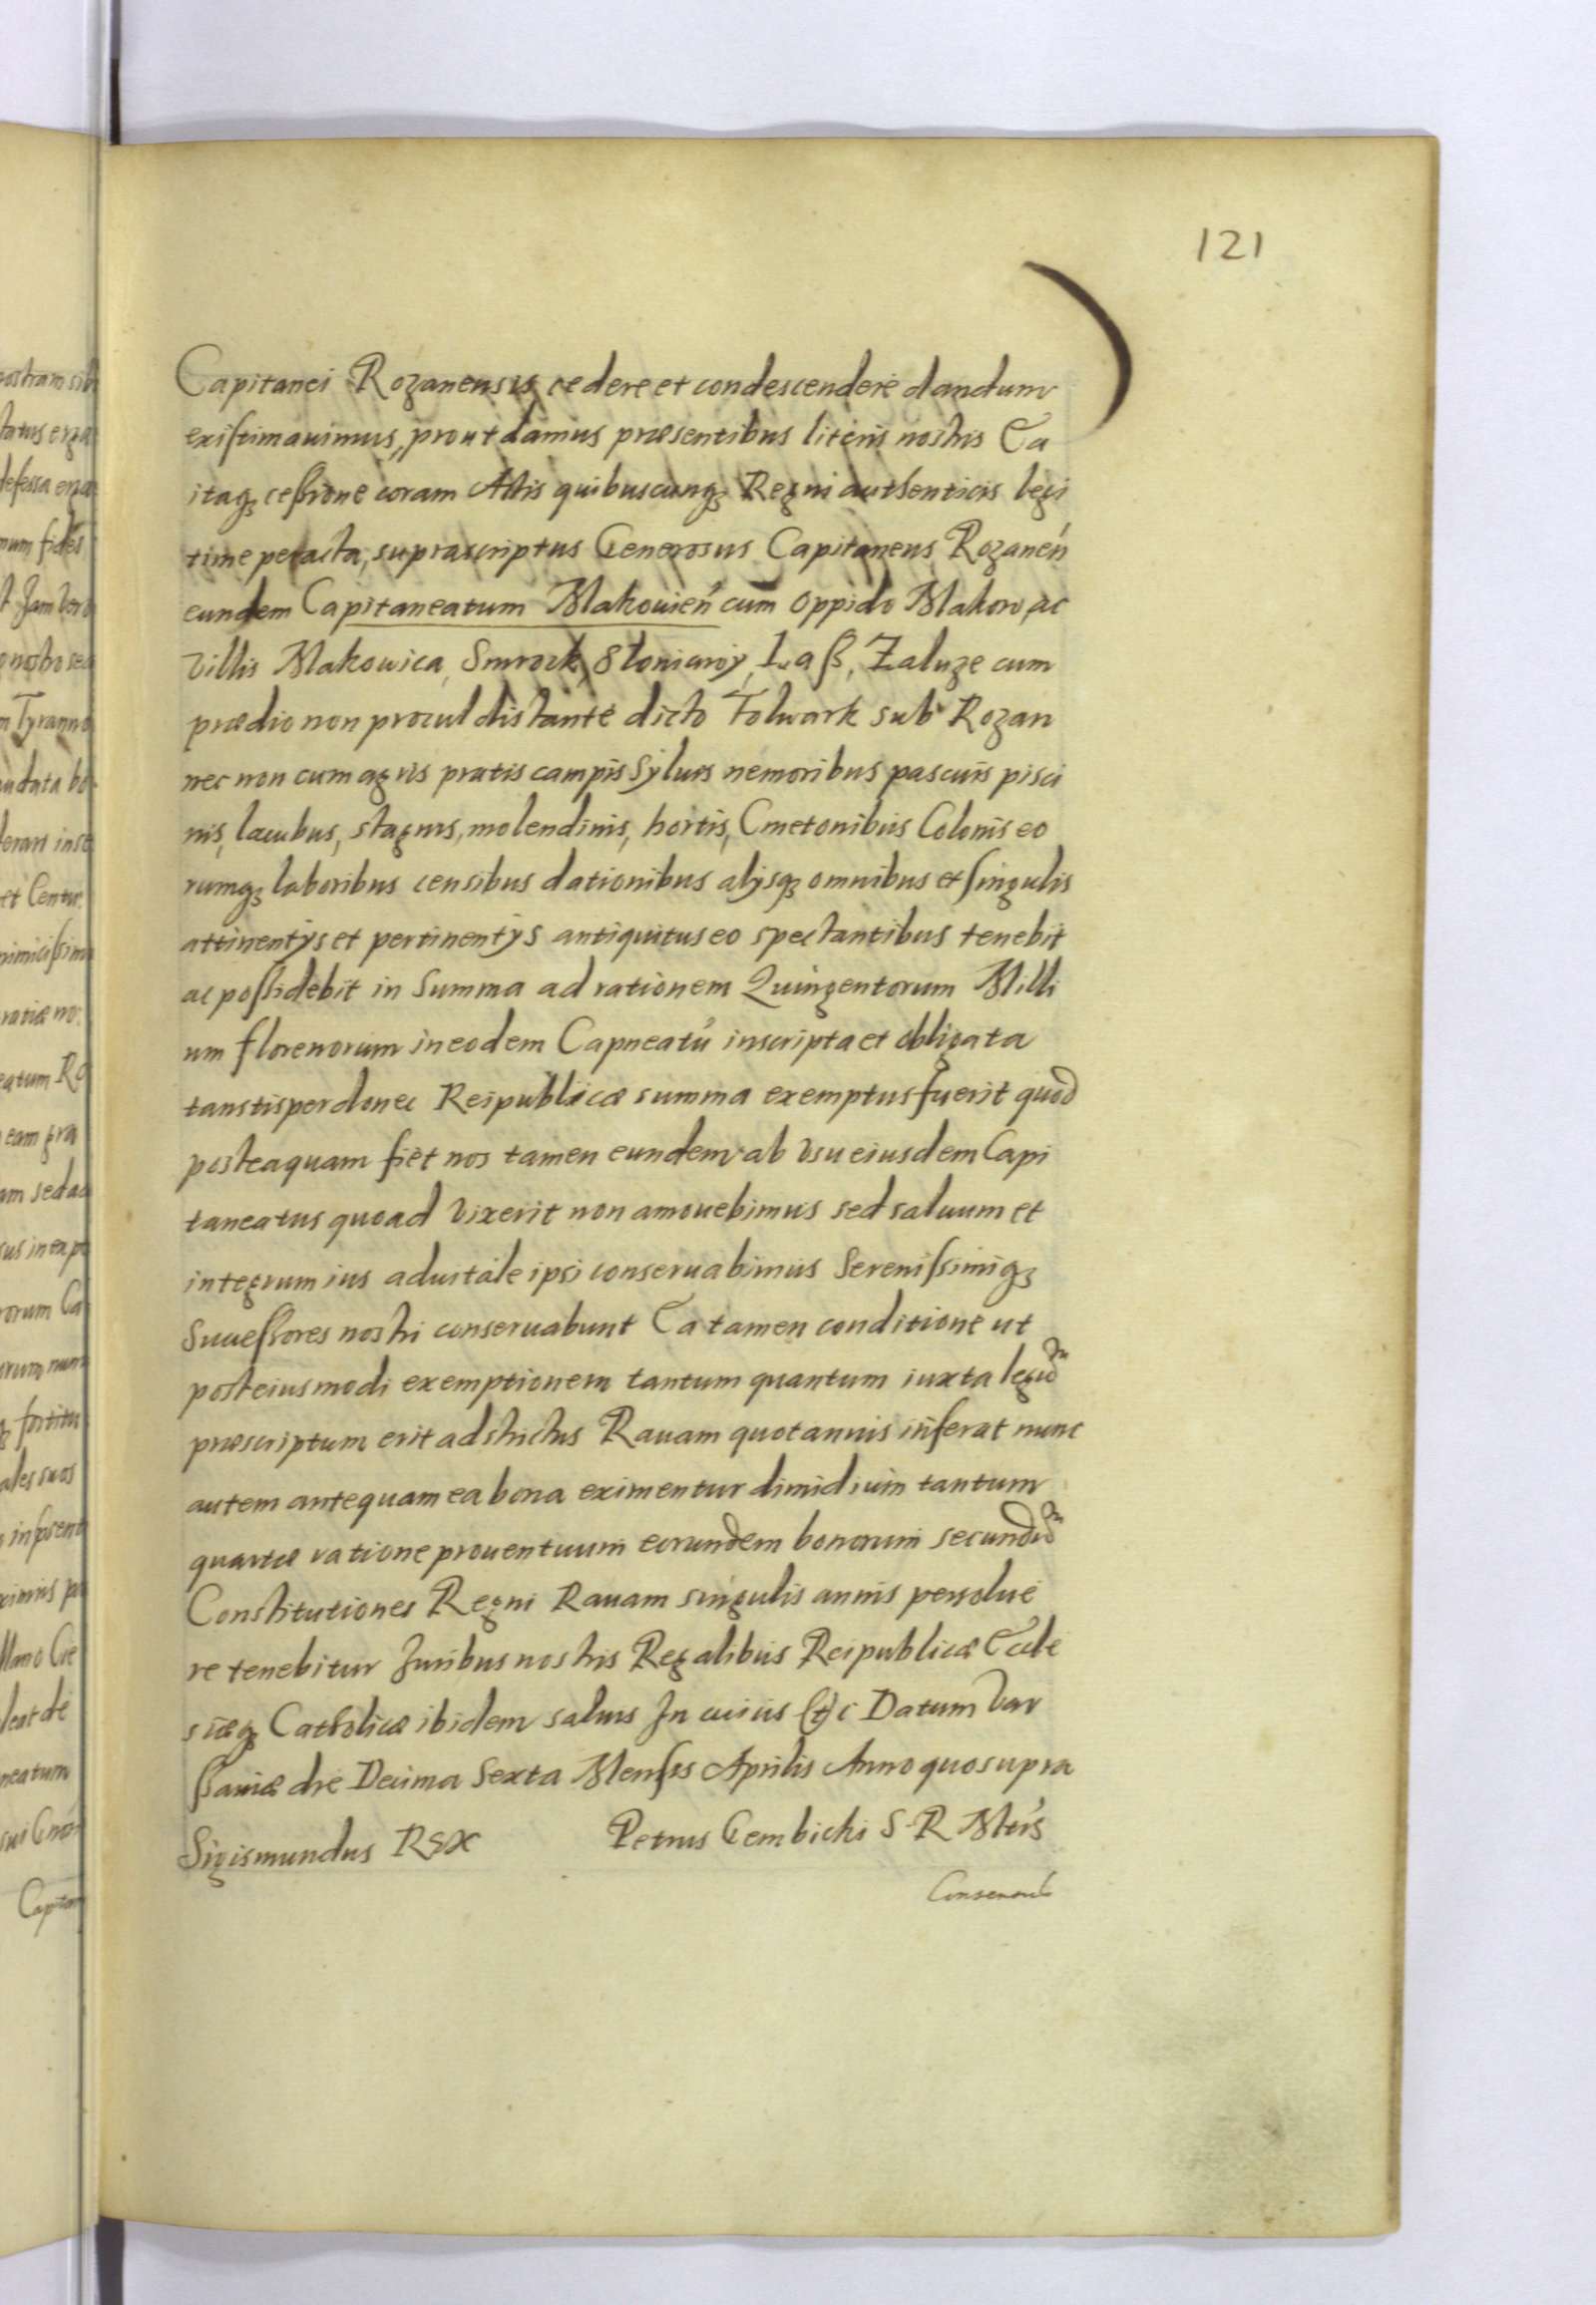 121
Capitanei Rozanensis cedere et condescendere dandum
existimauimus, prout damus præsentibus literis nostris Ea
itaqꝫ cessione coram Actis quibuscunqꝫ Regni authenticis legi
time peracta, suprascriptus Generosus Capitaneus Rozaneń
eundem Capitaneatum Makouień cum oppido Makow, ac
Villis Makowica, Smrock, Słoniawy, Laß, Zaluze cum
prædio non procul distante dicto Folwark sub Rozan
nec non cum agris pratis campis Syluis nemoribus pascuis pisci
nis, lacubus, stagnis, molendinis, hortis, Cmetonibus Colonis eo
rumqꝫ laboribus censibus dationibus alijsqꝫ omnibus et singulis
attinentijs et pertinentijs antiquitus eo spectantibus tenebit
ac possidebit in Summa ad rationem Quingentorum Milli
um florenorum in eodem Capneatu inscripta et obligata
tanstisper donec Reipublicæ summa exemptus fuerit quod
posteaquam fiet nos tamen eundem ab Vsu eiusdem Capi
taneatus quoad Vixerit non amouebimus sed saluum et
integrum ius aduitale ipsi conseruabimus Serenissimiqꝫ
Successores nostri conseruabunt Ea tamen conditione ut
post eiusmodi exemptionem tantum quantum iuxta legum
præscriptum erit adstrictus Rauam quotannis inferat nunc
autem antequam ea bona eximentur dimidium tantum
quartæ ratione prouentuum eorundem bonorum secundum
Constitutiones Regni Rauam singulis annis persolue
re tenebitur Juribus nostris Regalibus Reipublicæ Eccle
siæqꝫ Catholicæ ibidem saluis In cuius etc Datum Var
ssauiæ die Decima Sexta Mensis Aprilis Anno quo supra
Sigismundus Rex Petrus Gembicki S R Mtis